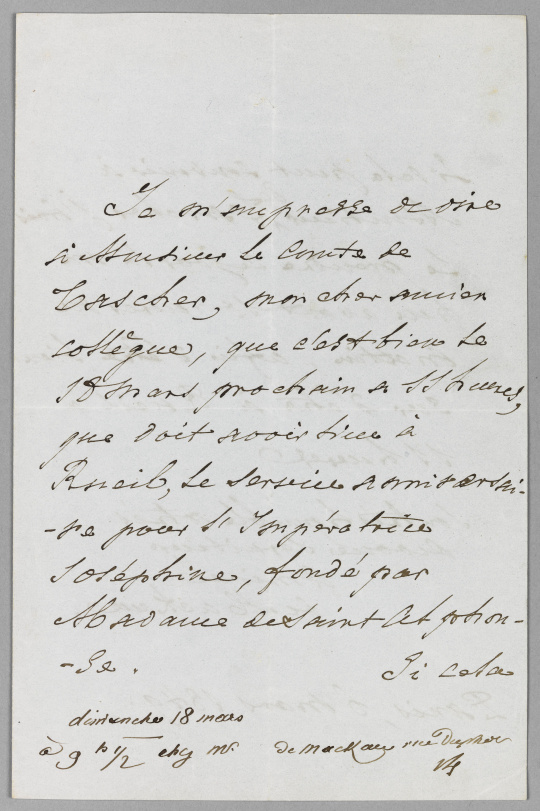 Je m'empresse de dire
à Monsieur le Comte de
Tascher, mon cher ancien
collègue, que c'est bien le
18 mars prochain à 11 heures,
que doit avoir lieu à
Rueil, le Service anniversai-
-re pour l'Impératrice
Joséphine, fondé par
Madame de Saint Alphon-
-se. Si cela
dimanche 18 mars
à 9 h 1/2 chez mr de Mackau rue